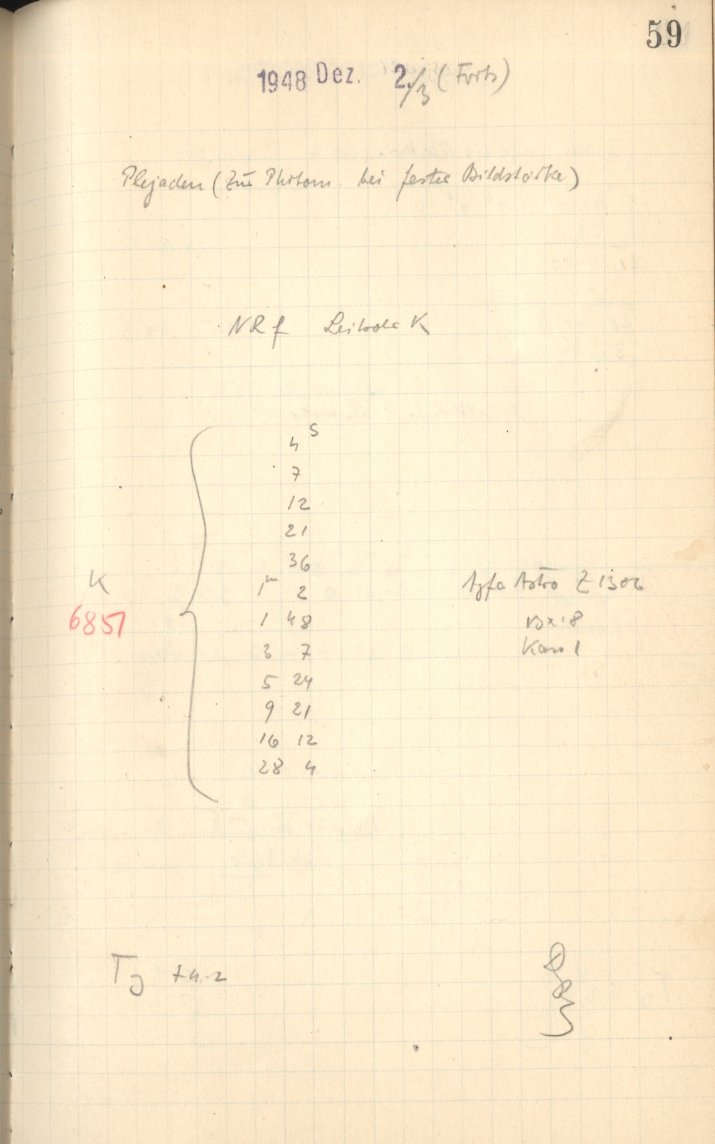 59
1948 Dez. 2./3 (Forts)
Plejaden (Zur Photom. bei fester Bildstärke)
NRf K
4 s
7
12
21
36
1m 2
1 48
3 7
5 24
9 21
16 12
28 4
K
6851
Agfa Astro Z 1306
Kass 1
TJ +4.2